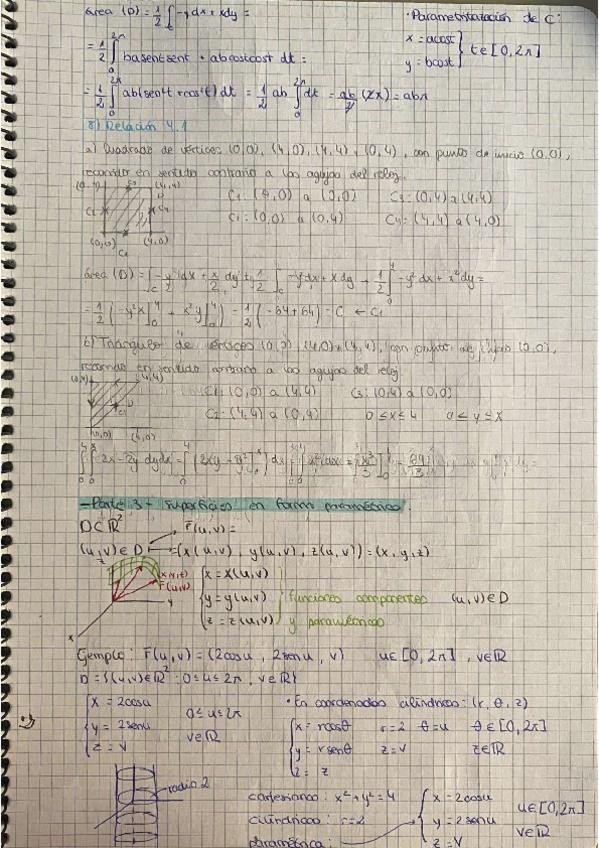 área (D) = 1/2 ∫ -y dx + x dy =
· Parametrización de C:
x = a cost
y = b cost } t ∈ [0, 2π]
= 1/2 ∫ b a sent sent + a b cost cost dt =
= 1/2 ∫ ab (sen²t + cos²t) dt = 1/2 ab ∫ dt = ab/2 (2π) = abπ
8) Relación 4.1
a) Cuadrado de vértices (0,0), (4,0), (4,4), (0,4), con punto de inicio (0,0),
recorrido en sentido contrario a las agujas del reloj.
(4,4)
C1: (0,0) a (0,0) C3: (0,4) a (4,4)
C1: (0,0) a (0,4) C4: (4,4) a (4,0)
(0,0) (4,0)
área (D) = ∫ -y/2 dx + x/2 dy = 1/2 ∫ -y dx + x dy = 1/2 ∫ -y² dx + x² dy =
= 1/2 ( -y²x ]⁴₀ + x²y ]⁴₀ ) = 1/2 (-64 + 64) = C ← C1
b) Triángulo de vértices (0,0), (4,0), (4,4), con de inicio (0,0),
recorrido en sentido contrario a las agujas del reloj
(0,4) (4,4)
C1: (0,0) a (4,4) C3: (0,4) a (0,0)
C2: (4,4) a (0,4) 0 ≤ x ≤ 4 0 ≤ y ≤ x
(0,0) (4,0)
∫∫ 2x - 2y dy dx = ∫ [2xy - y²] dx = ∫ x² dx = [x³/3] = 64/3
- Parte 3 - Superficies en forma paramétrica.
D ⊂ ℝ² r̄(u,v) =
(u,v) ∈ D → = (x(u,v), y(u,v), z(u,v)) = (x, y, z)
z
x = x(u,v)
r̄(u,v)
y = y(u,v) funciones componentes (u,v) ∈ D
z = z(u,v) y paramétricas
x y
Ejemplo: r̄(u,v) = (2cosu, 2senu, v) u ∈ [0, 2π], v ∈ ℝ
D = {(u,v) ∈ ℝ² : 0 ≤ u ≤ 2π, v ∈ ℝ}
x = 2cosu
y = 2senu
z = v
0 ≤ u ≤ 2π
v ∈ ℝ
· En coordenadas cilíndricas: (r, θ, z)
x = r cosθ r = 2 θ = u θ ∈ [0, 2π]
y = r senθ z = v z ∈ ℝ
z = z
radio 2
cartesianas: x² + y² = 4
cilíndricas: r = 2
paramétrica:
x = 2cosu
y = 2senu
z = v
u ∈ [0, 2π]
v ∈ ℝ